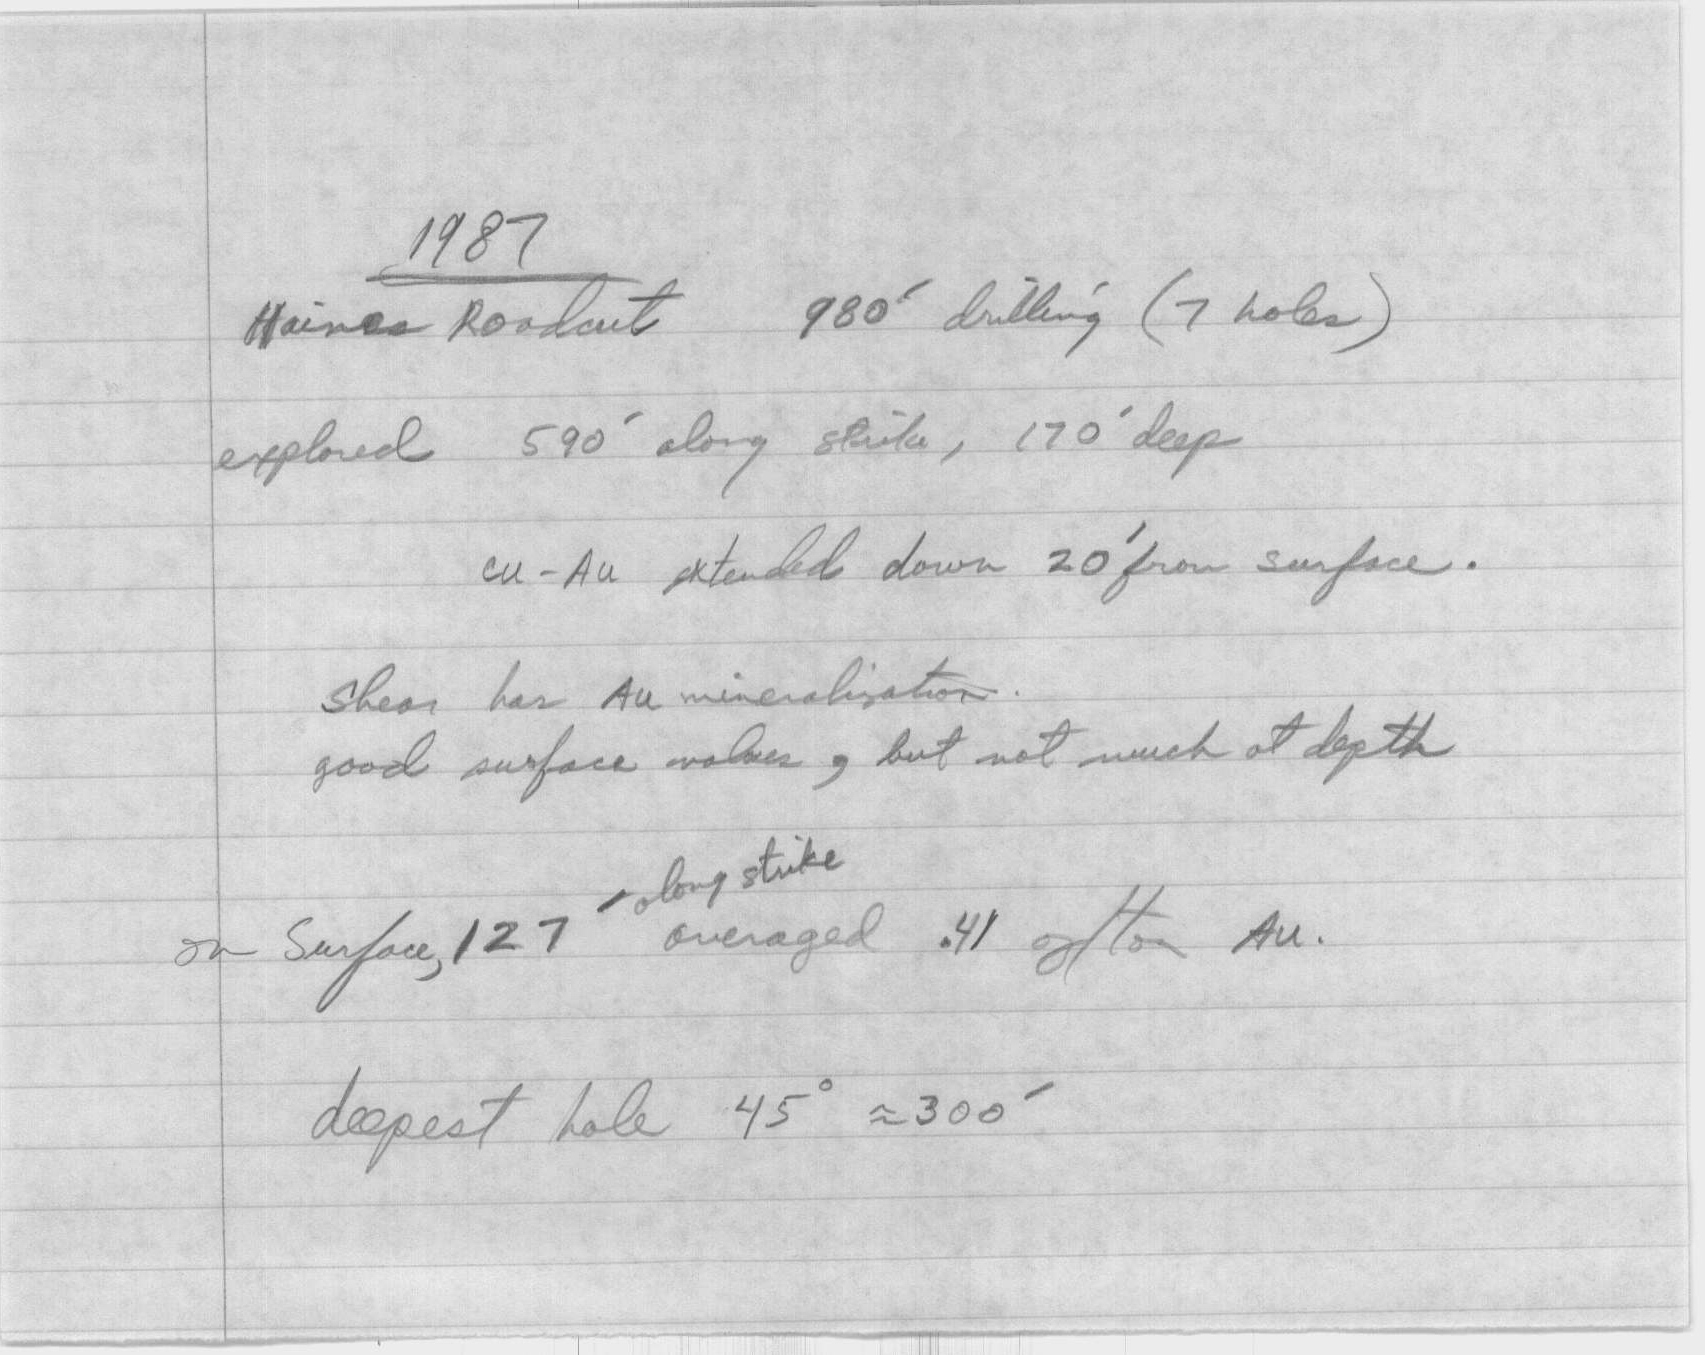 1987
Haines Roadcut 980' drilling (7 holes)
explored 590' along strike, 170' deep
Cu-Au extended down 20' from surface.
Shear has Au mineralization.
good surface values, but not much at depth
along strike
on Surface, 127' averaged .41 oz/ton Au.
deepest hole 45° ≈300'